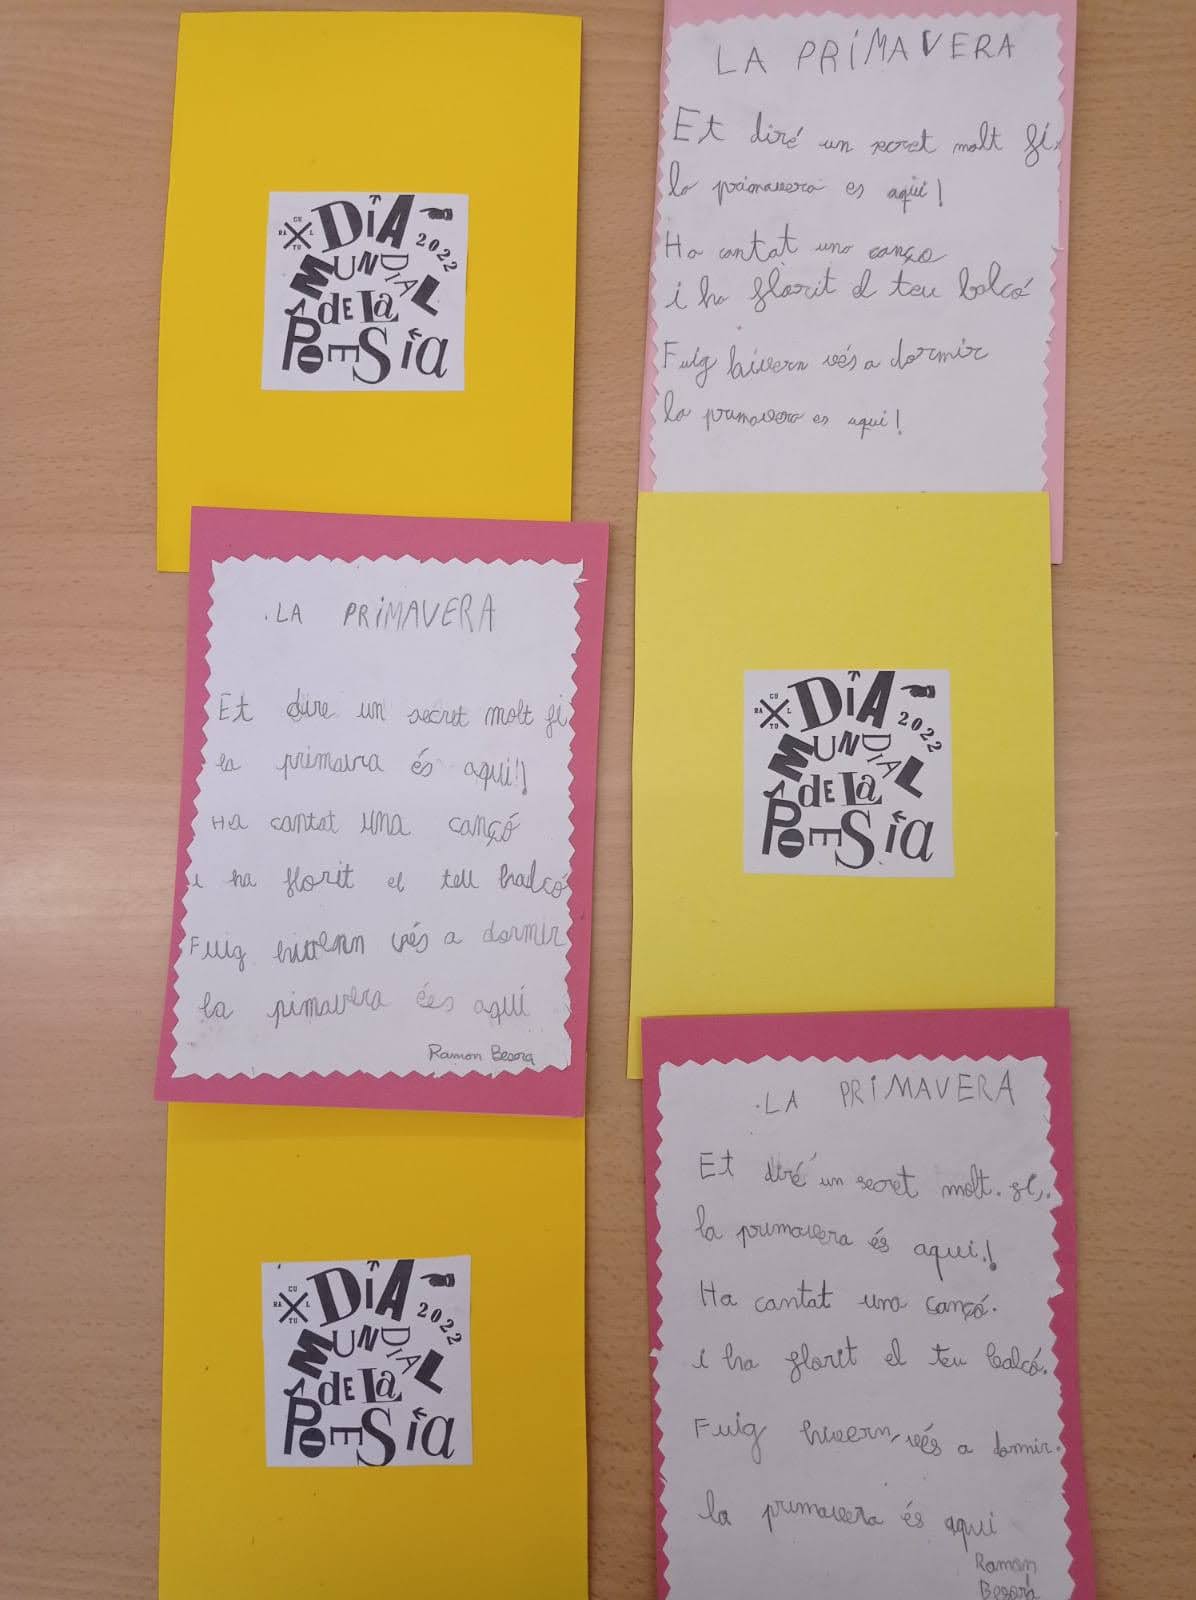 CU
RA L
TU
DIA
2022
MUNDIAL
DE LA
POESIA
LA PRIMAVERA
Et diré un secret molt fi,
la primavera es aqui!
Ha cantat una canço
i ha florit el teu balcó
Fuig hivern vés a dormir
la primavera es aqui!
.LA PRIMAVERA
Et dire un secret molt fi
la primaura és aqui!!
Ha cantat una cançó
i ha florit el teu balcó
Fuig hivern vés a dormir
la pimavera ées aquí
Ramon Besora
CU
RA L
TU
DIA
2022
MUNDIAL
DE LA
POESIA
CU
RA L
TU
DIA
2022
MUNDIAL
DE LA
POESIA
.LA PRIMAVERA
Et diré un secret molt. fi,.
la primavera és aqui.!
Ha cantat una cançó.
i ha florit el teu balcó.
Fuig hivern, vés a dormir.
la primavera és aqui
Ramon
Besora